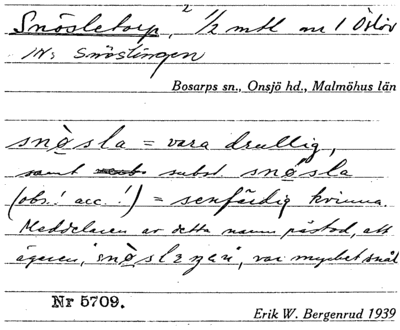 Snösletorp, 2 1/2 mtl nr 1 Östöv
IN: Snöslingen
Bosarps sn., Onsjö hd., Malmöhus län
snösla = vara drullig,
samt subst snösla
(obs! acc.!) = senfärdig kvinna.
Meddelaren av detta namn påstod, att
ägaren, "snöslegan", var mycket snål
Nr 5709.
Erik W. Bergenrud 1939